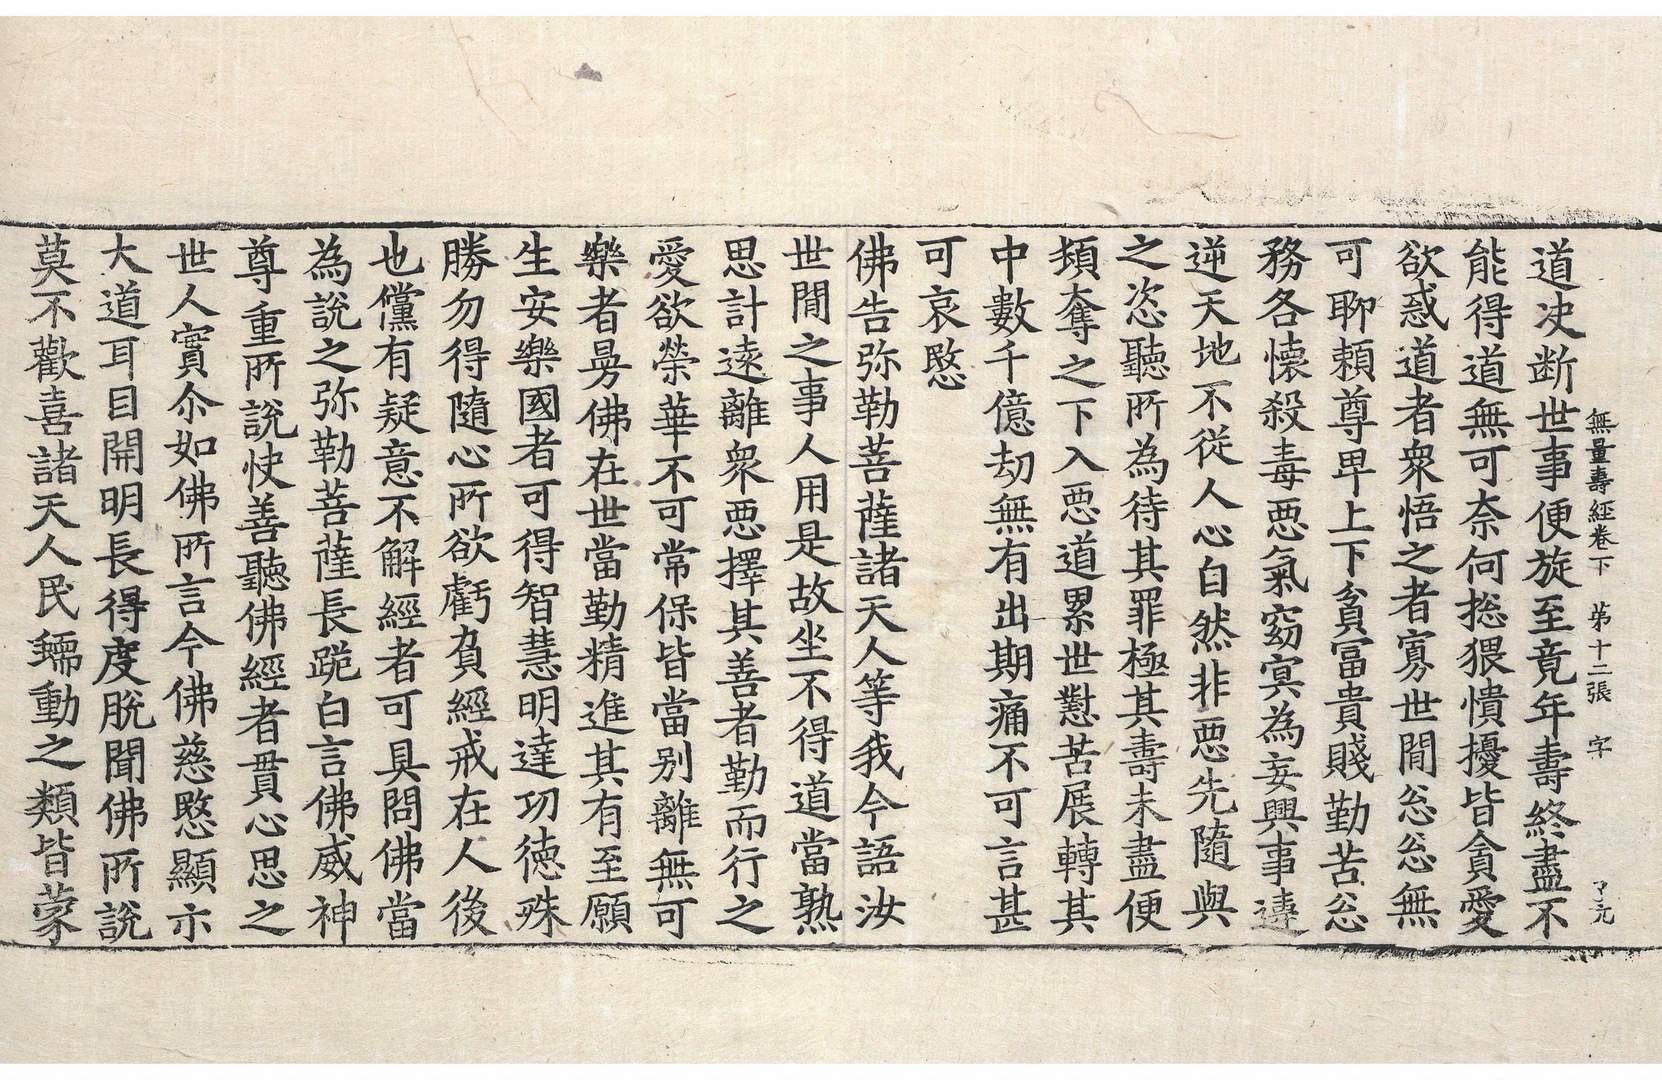 無量壽經卷下　苐十二張　字　了元
道决断世事便旋至竟年壽終盡不
能得道無可奈何揔猥憒擾皆貪愛
欲惑道者衆悟之者寡世間忩忩無
可聊頼尊卑上下貧富貴賤勤苦忩
務各懷殺毒惡氣窈冥為妄興事違
逆天地不從人心自然非惡先隨與
之恣聽所為待其罪極其壽未盡便
頓奪之下入惡道累世懟苦展轉其
中數千億劫無有出期痛不可言甚
可哀愍
佛告弥勒菩薩諸天人等我今語汝
世間之事人用是故坐不得道當熟
思計遠離衆惡擇其善者勤而行之
愛欲榮華不可常保皆當別離無可
樂者曼佛在世當勤精進其有至願
生安樂國者可得智慧明達功德殊
勝勿得隨心所欲虧負經戒在人後
也儻有疑意不解經者可具問佛當
為說之弥勒菩薩長跪白言佛威神
尊重所說快善聽佛經者貫心思之
世人實尒如佛所言今佛慈愍顯示
大道耳目開明長得度脫聞佛所說
莫不歡喜諸天人民蠕動之類皆蒙